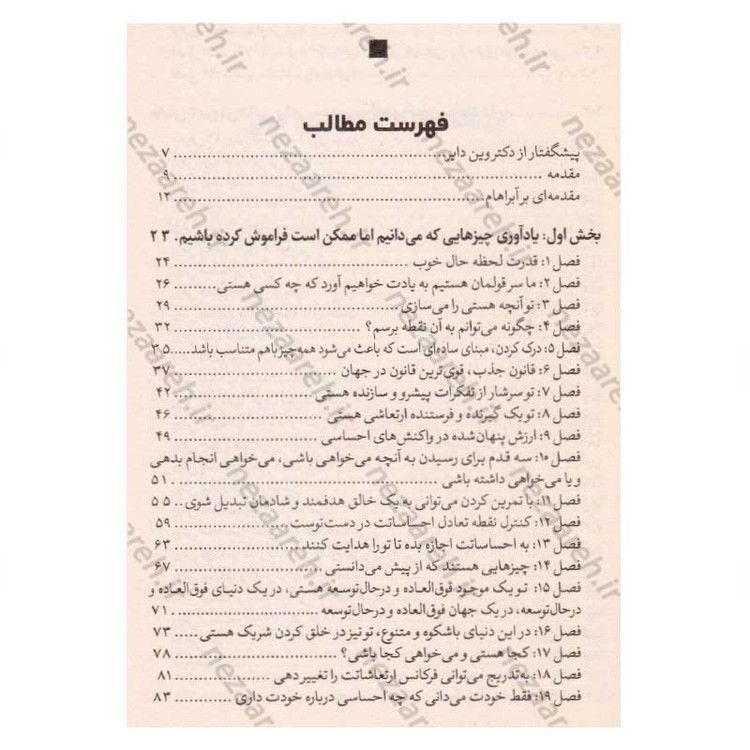 فهرست مطالب
پیشگفتار از دکتر وین دایر........................ ۷
مقدمه ........................ ۹
مقدمه‌ای بر آبراهام........................ ۱۲
بخش اول: یادآوری چیزهایی که می‌دانیم اما ممکن است فراموش کرده باشیم. ۲۳
فصل ۱: قدرت لحظه حال خوب ........................ ۲۴
فصل ۲: ما سر قولمان هستیم به یادت خواهیم آورد که چه کسی هستی..... ۲۶
فصل ۳: تو آنچه هستی را می‌سازی........................ ۲۹
فصل ۴: چگونه می‌توانم به آن نقطه برسم؟ ........................ ۳۲
فصل ۵: درک کردن، مبنای ساده‌ای است که باعث می‌شود همه‌چیز باهم متناسب باشد.....۳۵
فصل ۶: قانون جذب، قوی‌ترین قانون در جهان ........................ ۳۷
فصل ۷: تو سرشار از تفکرات پیشرو و سازنده هستی ........................ ۴۲
فصل ۸: تو یک گیرنده و فرستنده ارتعاشی هستی ........................ ۴۶
فصل ۹: ارزش پنهان‌شده در واکنش‌های احساسی ........................ ۴۹
فصل ۱۰: سه قدم برای رسیدن به آنچه می‌خواهی باشی، می‌خواهی انجام بدهی
و یا می‌خواهی داشته باشی ........................ ۵۱
فصل ۱۱: با تمرین کردن می‌توانی به یک خالق هدفمند و شادمان تبدیل شوی .. ۵۵
فصل ۱۲: کنترل نقطه تعادل احساساتت در دست توست........................ ۵۹
فصل ۱۳: به احساساتت اجازه بده تا تو را هدایت کنند ........................ ۶۳
فصل ۱۴: چیزهایی هستند که از پیش می‌دانستی ........................ ۶۷
فصل ۱۵: تو یک موجود فوق‌العاده و درحال‌توسعه هستی، در یک دنیای فوق‌العاده و
درحال‌توسعه، در یک جهان فوق‌العاده و درحال‌توسعه ........................ ۷۱
فصل ۱۶: در این دنیای باشکوه و متنوع، تو نیز در خلق کردن شریک هستی..... ۷۳
فصل ۱۷: کجا هستی و می‌خواهی کجا باشی؟ ........................ ۷۸
فصل ۱۸: به‌تدریج می‌توانی فرکانس ارتعاشاتت را تغییر دهی ........................ ۸۱
فصل ۱۹: فقط خودت می‌دانی که چه احساسی درباره خودت داری ........................ ۸۳
nezaareh.ir